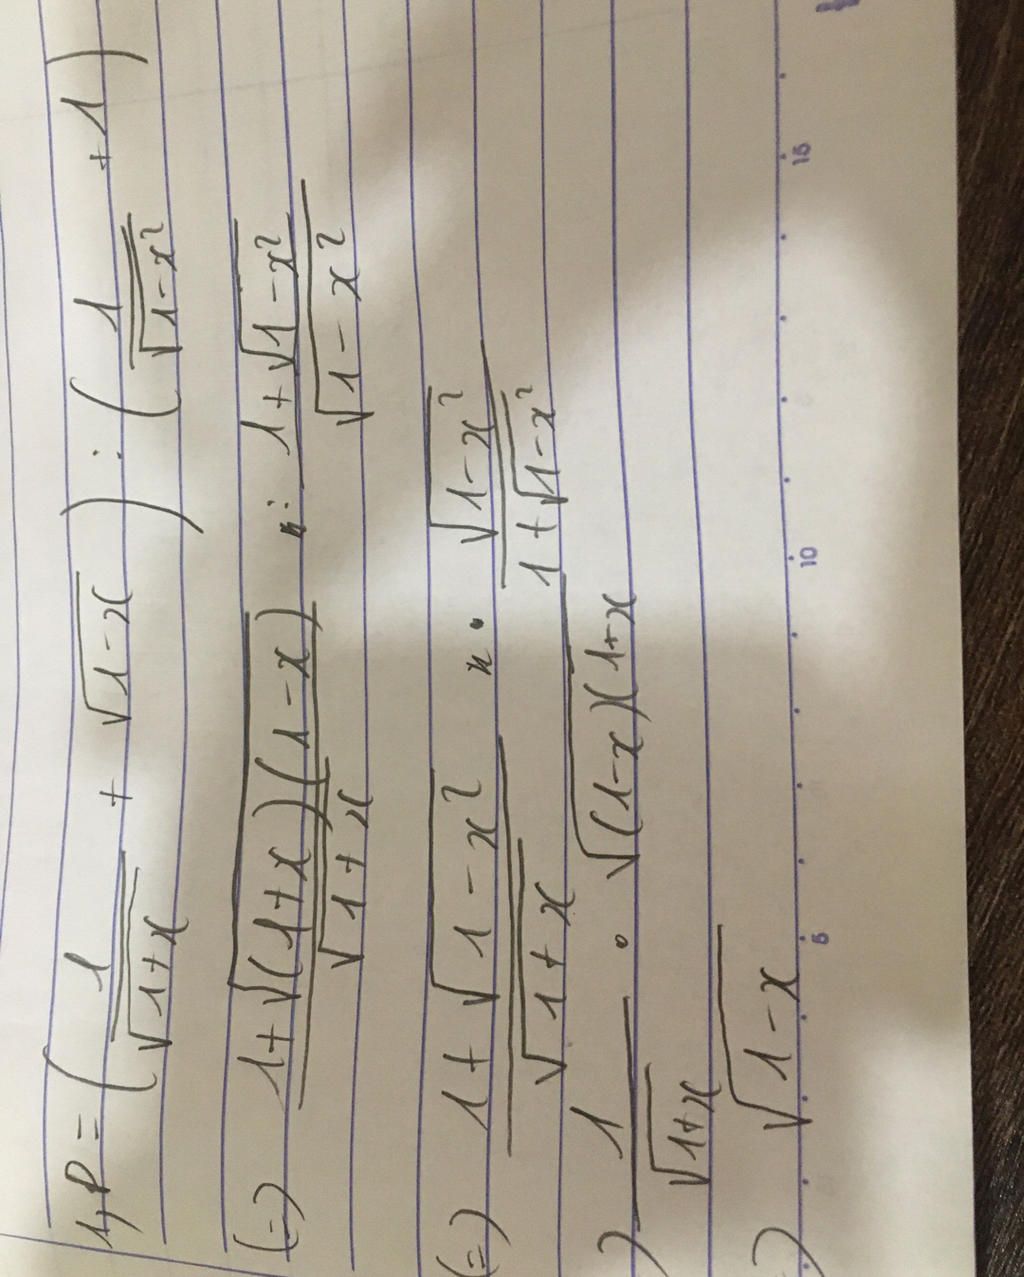 1, P = ( 1/√(1+x) + √(1-x) ) : ( 1/√(1-x²) + 1 )
(=) (1+√((1+x)(1-x)))/√(1+x) : (1+√(1-x²))/√(1-x²)
(=) (1+√(1-x²))/√(1+x) · √(1-x²)/(1+√(1-x²))
) 1/√(1+x) · √((1-x)(1+x)
) √(1-x)
5 10 15